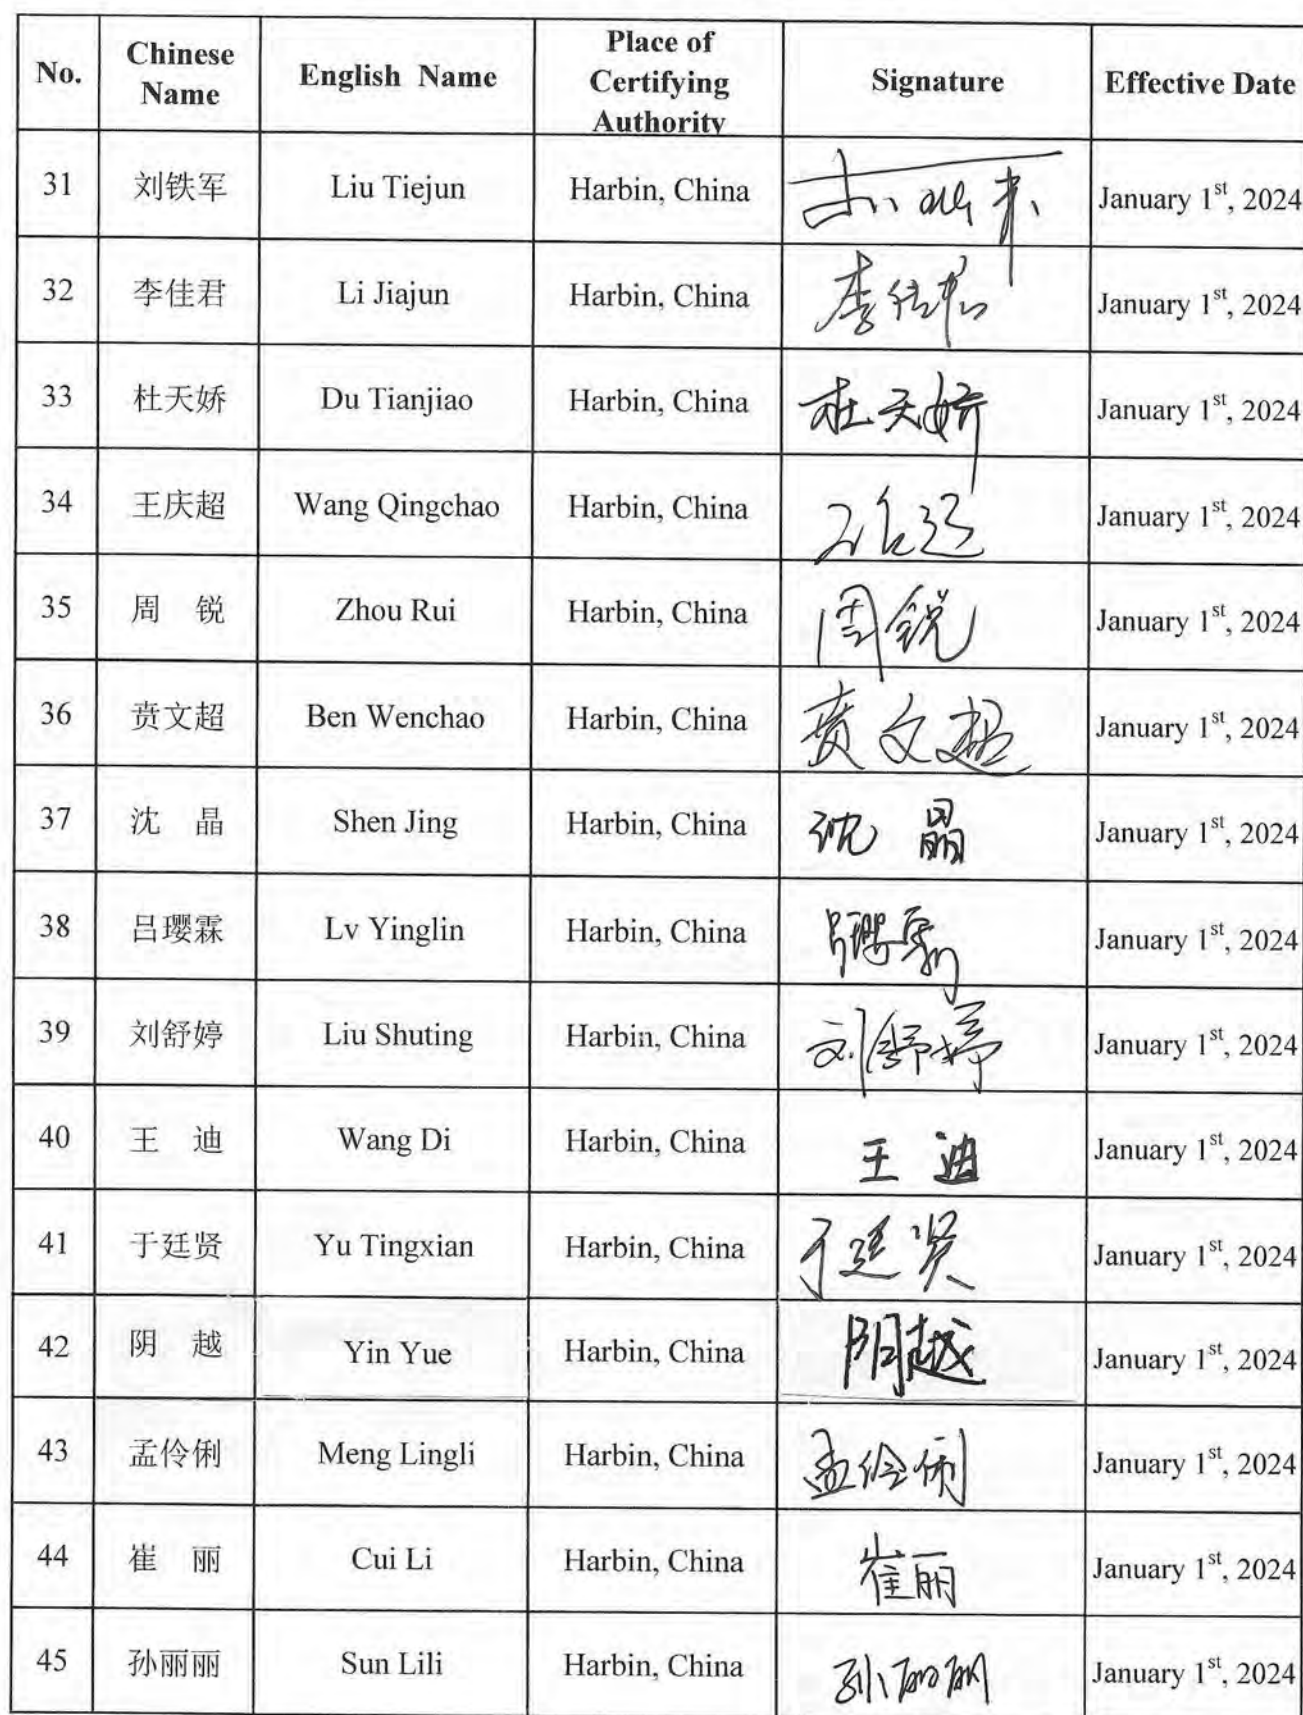 No. Chinese Name English Name Place of Certifying Authority Signature Effective Date
31 刘铁军 Liu Tiejun Harbin, China January 1st, 2024
32 李佳君 Li Jiajun Harbin, China 李佳君 January 1st, 2024
33 杜天娇 Du Tianjiao Harbin, China 杜天娇 January 1st, 2024
34 王庆超 Wang Qingchao Harbin, China January 1st, 2024
35 周 锐 Zhou Rui Harbin, China 周锐 January 1st, 2024
36 贲文超 Ben Wenchao Harbin, China 贲文超 January 1st, 2024
37 沈 晶 Shen Jing Harbin, China 沈 晶 January 1st, 2024
38 吕璎霖 Lv Yinglin Harbin, China 吕璎霖 January 1st, 2024
39 刘舒婷 Liu Shuting Harbin, China 刘舒婷 January 1st, 2024
40 王 迪 Wang Di Harbin, China 王 迪 January 1st, 2024
41 于廷贤 Yu Tingxian Harbin, China 于廷贤 January 1st, 2024
42 阴 越 Yin Yue Harbin, China 阴越 January 1st, 2024
43 孟伶俐 Meng Lingli Harbin, China 孟伶俐 January 1st, 2024
44 崔 丽 Cui Li Harbin, China 崔丽 January 1st, 2024
45 孙丽丽 Sun Lili Harbin, China 孙丽丽 January 1st, 2024